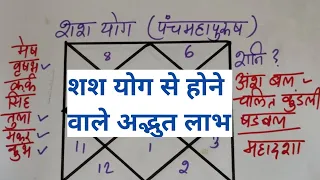 शश योग (पंचमहापुरुष)
मेष
वृषभ
कर्क
सिंह
तुला
मकर
कुंभ
8
6
शश योग से होने
वाले अद्भुत लाभ
11
1
3
12
2
शनि?
अंश बल
चलित कुंडली
षडबल
महादशा